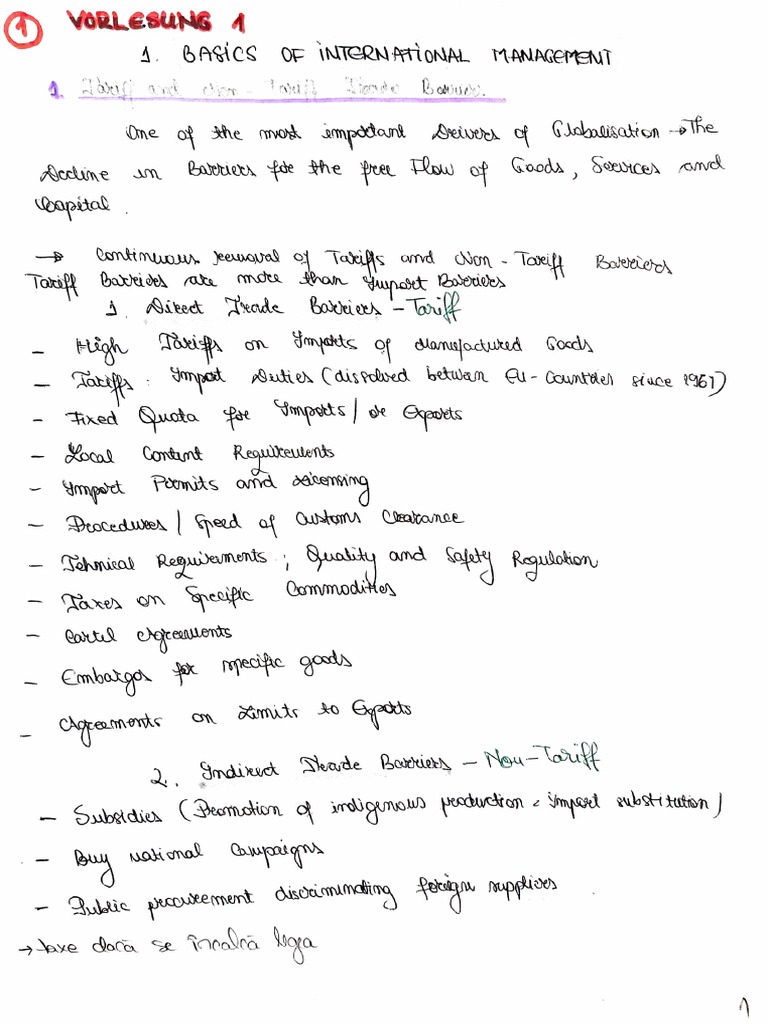 1 VORLESUNG 1
1. BASICS OF INTERNATIONAL MANAGEMENT
1. Tariff and Non-Tariff Trade Barriers.
One of the most important Drivers of Globalisation → The
Decline in Barriers for the free Flow of Goods, Services and
Capital.
→ Continuous removal of Tariffs and Non-Tariff Barriers
Tariff Barriers are more than Import Barriers
1. Direct Trade Barriers - Tariff
- High Tariffs on Imports of Manufactured Goods
- Tariffs: Import Duties (dissolved between EU-Countries since 1967)
- Fixed Quota for Imports / or Exports
- Local Content Requirements
- Import Permits and Licensing
- Procedures / Speed of Customs Clearance
- Tehnical Requirements; Quality and Safety Regulation
- Taxes on Specific Commodities
- Cartel Agreements
- Embargos for specific goods
- Agreements on Limits to Exports
2. Indirect Trade Barriers - Non-Tariff
- Subsidies (Promotion of indigenous production = import substitution)
- Buy national Campaigns
- Public procurement discriminating foreign suppliers
→ taxe dacă se încalcă legea
1